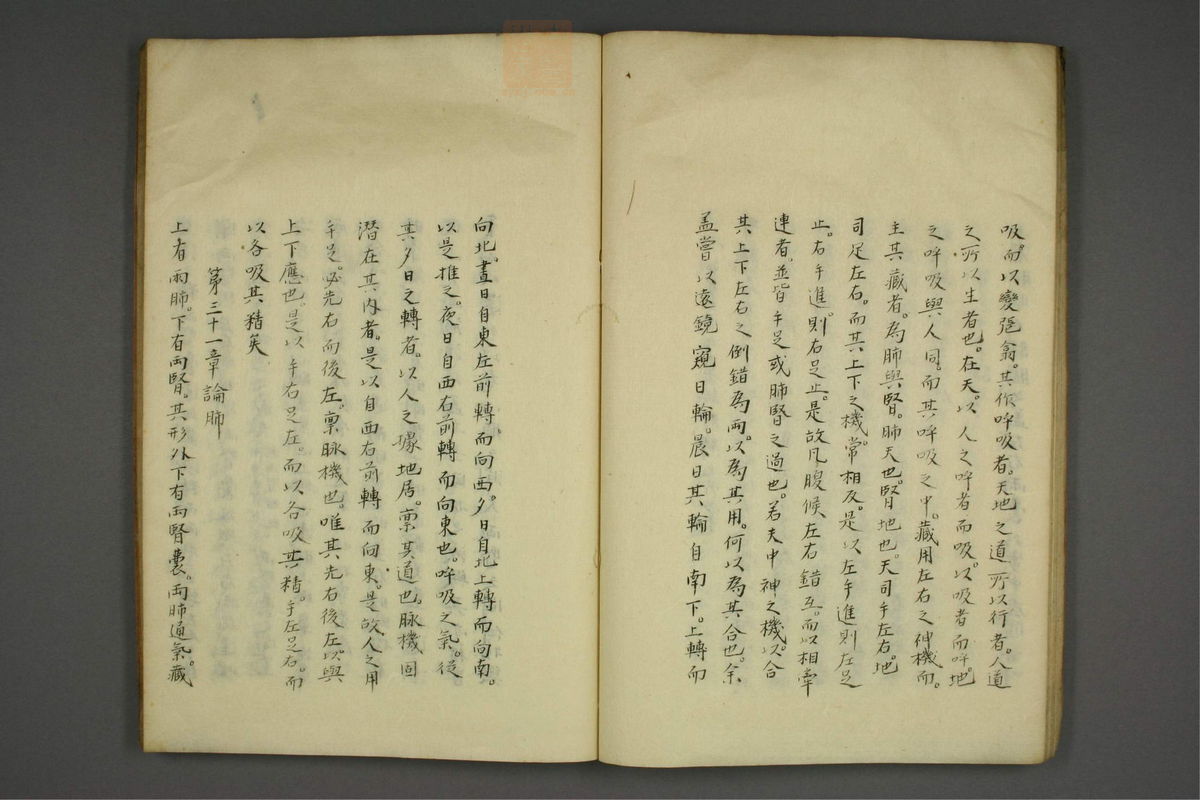 吸。而以變弛翕。其作呼吸者。天地之道所以行者。人道
之所以生者也。在天。以人之呼者而吸。以吸者而呼。地
之呼吸與人同。而其呼吸之中。藏用左右之神機。而。
主其藏者。為肺與腎。肺天也。腎地也。天司手左右。地
司足左右。而其上下之機。常相反。是以左手進則左足
止。右手進。則右足止。是故凡腹候左右錯互。而以相牽
連者。並皆手足或肺腎之過也。若夫中神之機。以合
其上下左右之倒錯為兩。以為其用。何以為其合也。余
盖嘗以遠鏡窺日輪。晨日其輪自南下。上轉而
向北。晝日自東左前轉。而向西。夕日自北上轉而向南。
以是推之。夜日自西右前轉而向東也。呼吸之氣。從
其夕日之轉者。以人之據地居。稟其道也。脉機固
潜在其内者。是以自西右前轉而向東。是故人之用
手足。必先右而後左。稟脉機也。唯其先右後左。以與
上下應也。是以手右足左。而以各吸其精。手左足右。而
以各吸其精矣
第三十一章論肺
上有兩肺。下有兩腎。其形外下有兩腎囊。兩肺通氣。藏